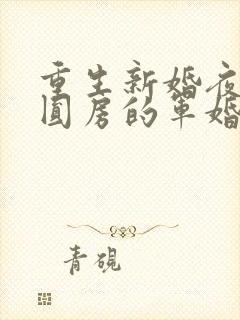 重生新婚夜
圆房的军婚
青砚